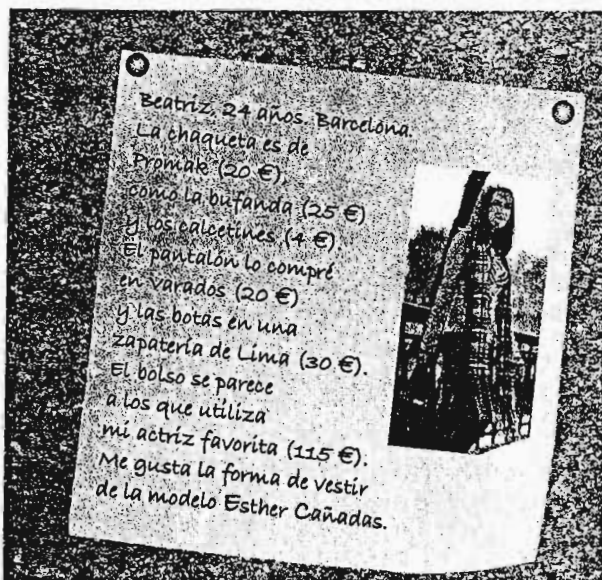 Beatriz, 24 años. Barcelona.
La chaqueta es de
Promak (20 €)
como la bufanda (25 €)
y los calcetines (4 €).
El pantalón lo compré
en varados (20 €)
y las botas en una
zapatería de Lima (30 €).
El bolso se parece
a los que utiliza
mi actriz favorita (115 €).
Me gusta la forma de vestir
de la modelo Esther Cañadas.